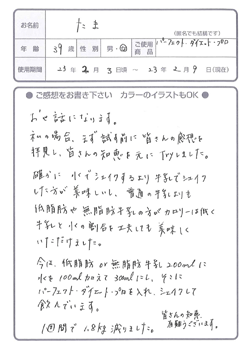 お名前 たま
(匿名でも結構です)
年齢 39歳 性別 男・女 ご使用商品 パーフェクト・ダイエット・プロ
使用期間 23年2月3日頃〜23年2月9日(現在)
●ご感想をお書き下さい カラーのイラストもOK●
お世話になります。
私の場合、まず試す前に皆さんの感想を
拝見し、皆さんの知恵を元にTryしました。
確かに水でシェイクするより牛乳でシェイク
した方が美味しいし、普通の牛乳よりも
低脂肪や無脂肪牛乳の方がカロリーは低く
牛乳と水の割合を工夫しても美味しく
いただけました。
今は、低脂肪or無脂肪牛乳200mlに
水を100ml加えて300mlにし、そこに
パーフェクト・ダイエット・プロを入れ、シェイクして
飲んでいます。
皆さんの知恵
1週間で1.8kg減りました。
有難うございます。